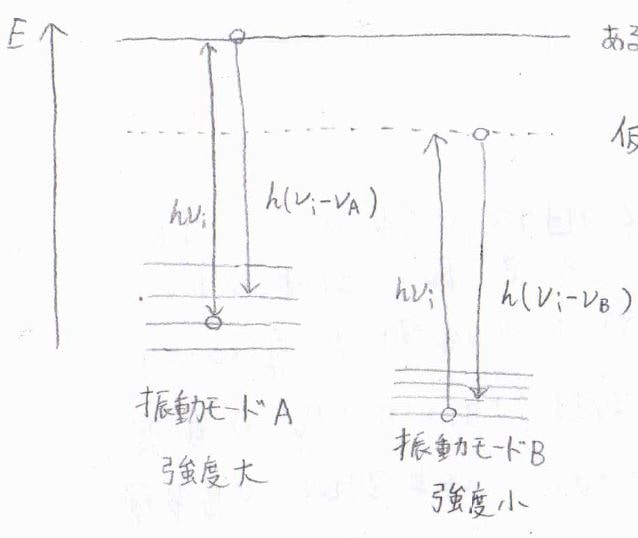 E
ある
仮
hνi
h(νi-νA)
hνi
h(νi-νB)
振動モードA
強度大
振動モードB
強度小